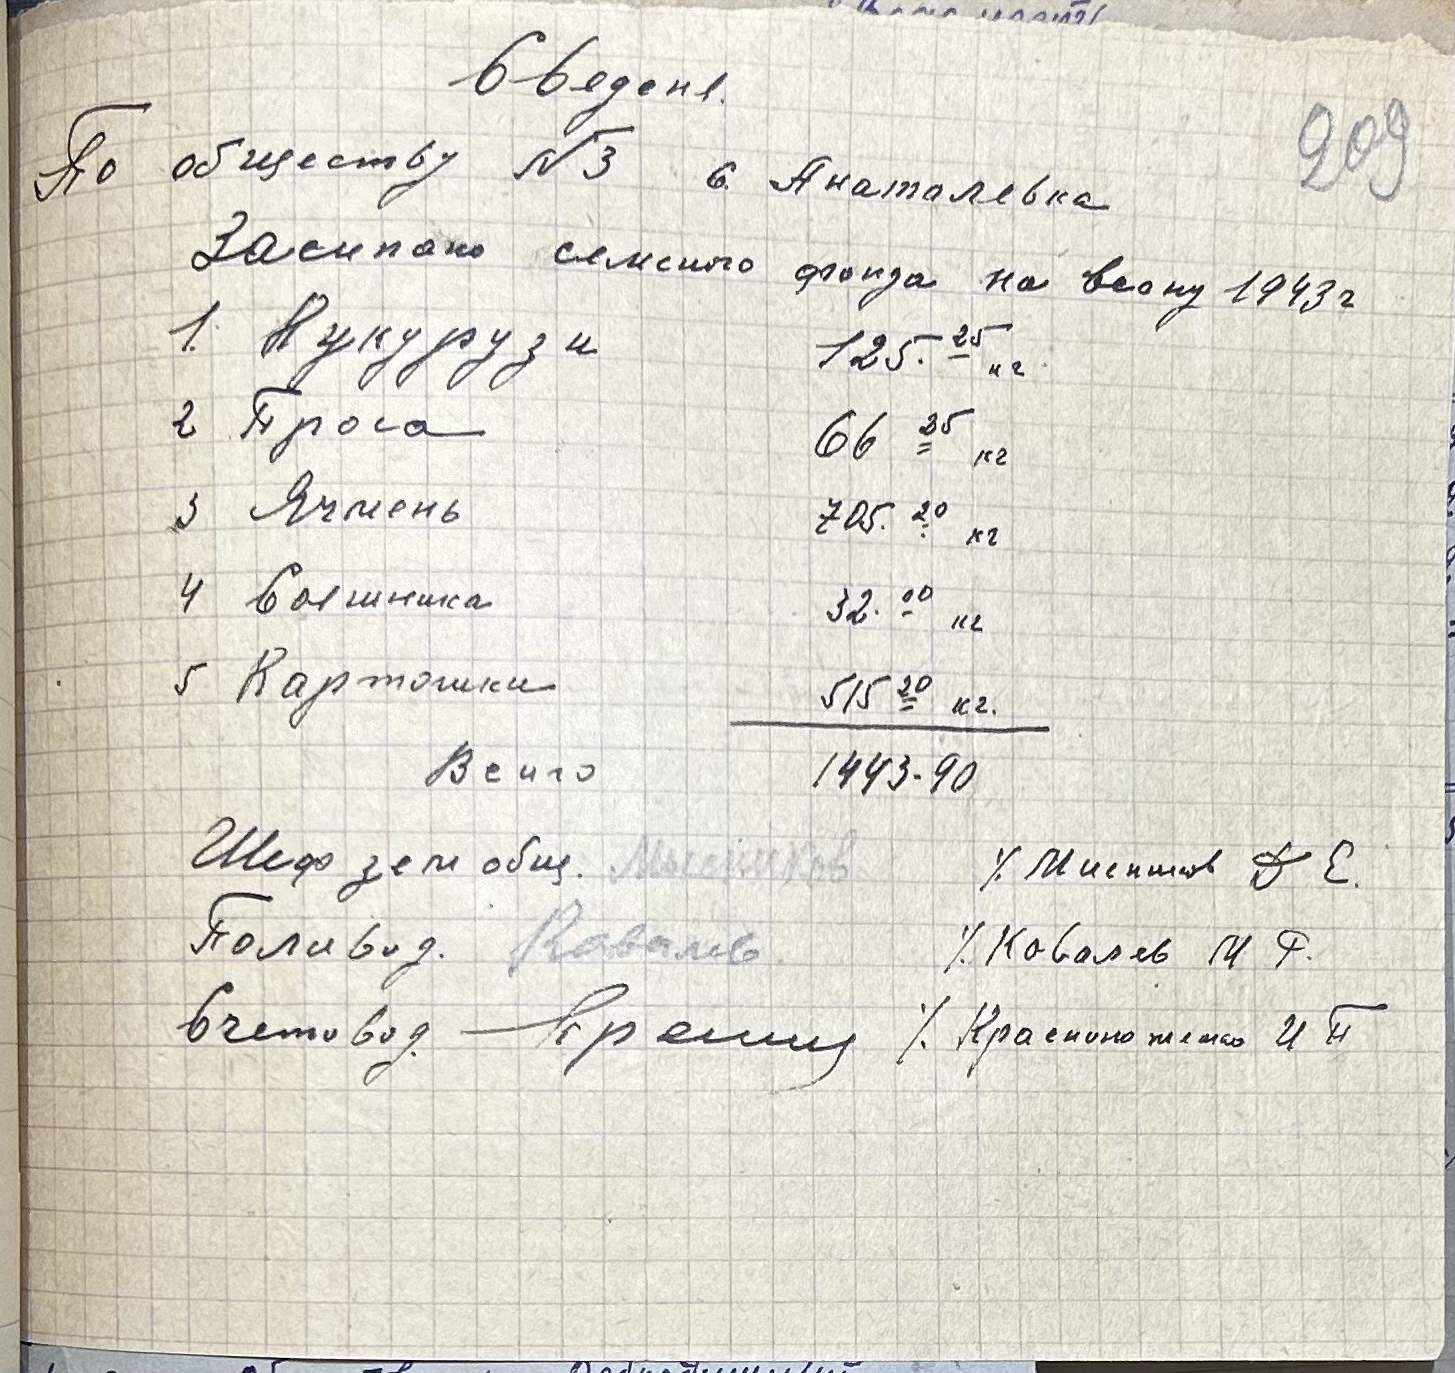 209
Сведени.
По обществу №3 с. Анаталевка
Засипано семеного фонда на весну 1943г
1. Кукурузи 125.25 кг
2 Проса 66 25 кг
3 Ячмень 705.20 кг
4 32.00 кг
5 Картошки 515 20 кг.
Всиго 1443-90
Шеф зем общ. Мысников /. Д Е.
Поливод. Ковалев /. Ковалев И Г.
Счетовод. /. Красноноженко И П